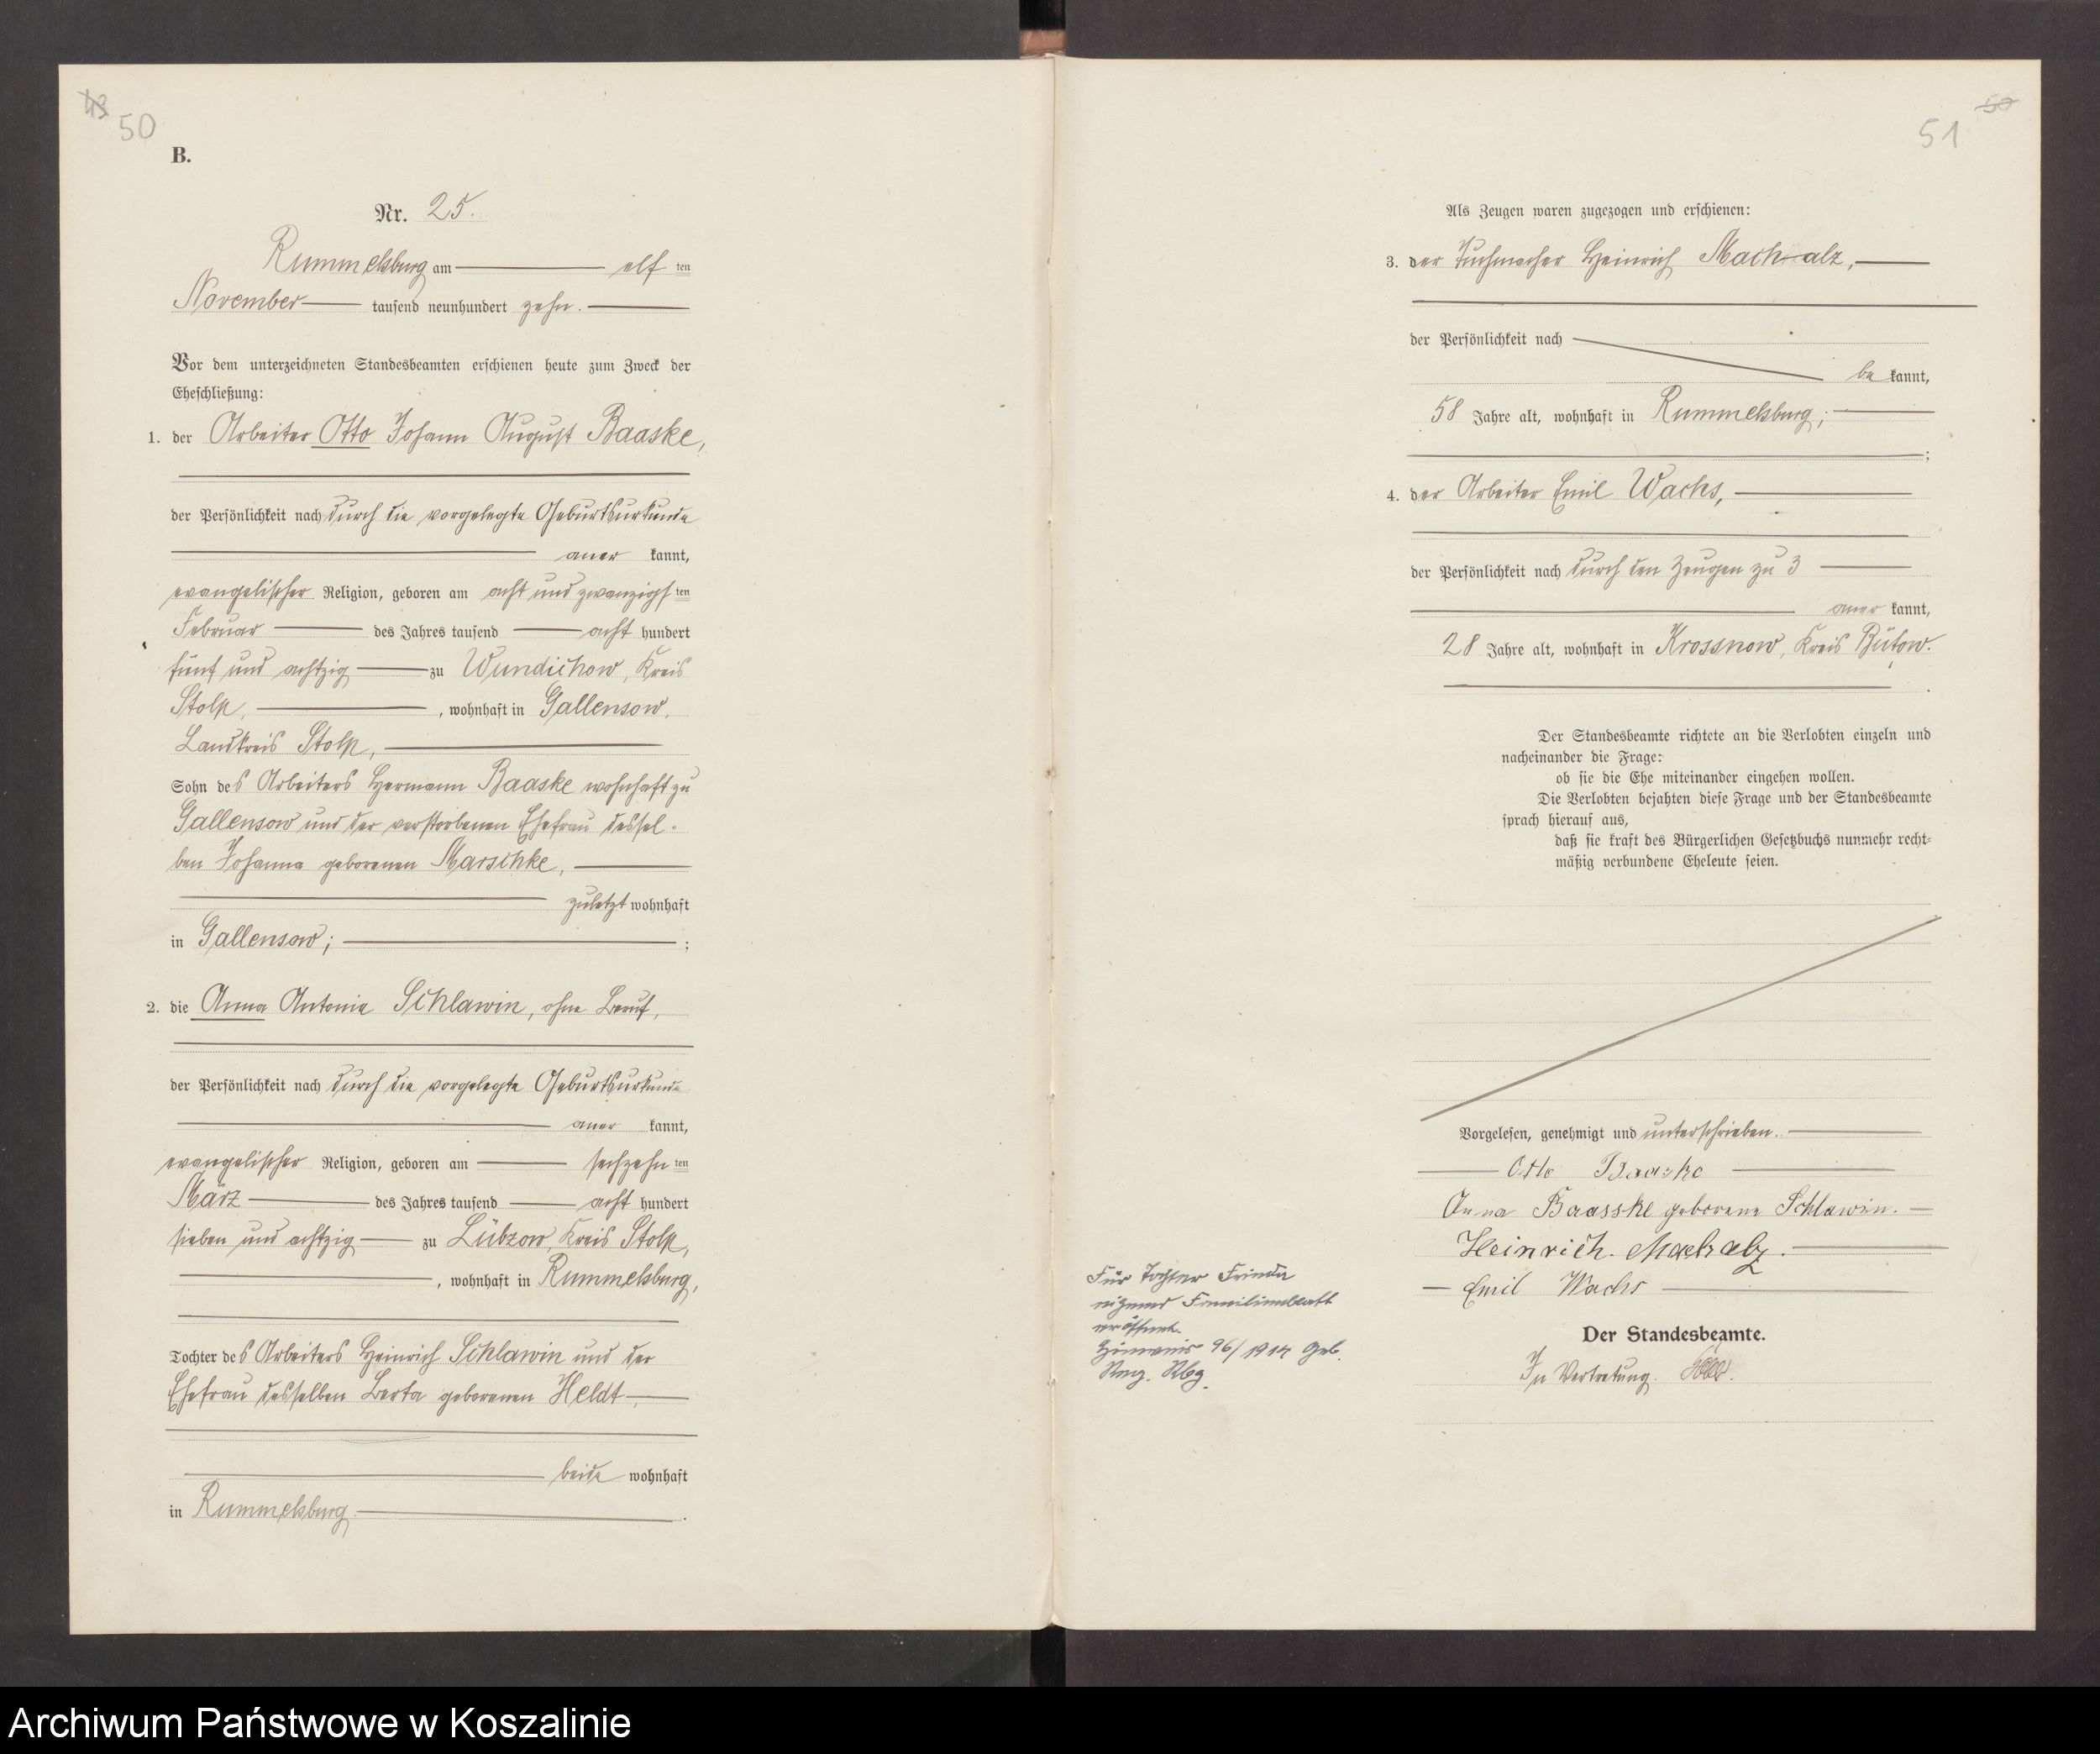 50
B.
Nr. 25.
Rummelsburg am elf ten
November tausend neunhundert zehn.
Vor dem unterzeichneten Standesbeamten erschienen heute zum Zweck der
Eheschließung:
1. der Arbeiter Otto Johann August Baaske,
der Persönlichkeit nach durch die vorgelegte Geburtsurkunde
aner kannt,
evangelischer Religion, geboren am acht und zwanzigs ten
Februar des Jahres tausend acht hundert
fünf und achtzig zu Wundichow, Kreis
Stolp, , wohnhaft in Gallensow,
Landkreis Stolp,
Sohn des Arbeiters Hermann Baaske wohnhaft zu
Gallensow und der verstorbenen Ehefrau dessel-
ben Johanna geborenen Marschke,
zuletzt wohnhaft
in Gallensow; ;
2. die Anna Antonie Schlawin, ohne Beruf,
der Persönlichkeit nach durch die vorgelegte Geburtsurkunde
aner kannt,
evangelischer Religion, geboren am sechzehn ten
März des Jahres tausend acht hundert
sieben und achtzig zu Lübzow, Kreis Stolp,
, wohnhaft in Rummelsburg,
Tochter des Arbeiters Heinrich Schlawin und der
Ehefrau desselben Berta geborenen Heldt,
beide wohnhaft
in Rummelsburg .
50
51
Als Zeugen waren zugezogen und erschienen:
3. der Tuchmacher Heinrich Machalz,
der Persönlichkeit nach
be kannt,
58 Jahre alt, wohnhaft in Rummelsburg;
;
4. der Arbeiter Emil Wachs,
der Persönlichkeit nach durch den Zeugen zu 3
aner kannt,
28 Jahre alt, wohnhaft in Krossnow, Kreis Bütow.
Der Standesbeamte richtete an die Verlobten einzeln und
nacheinander die Frage:
ob sie die Ehe miteinander eingehen wollen.
Die Verlobten bejahten diese Frage und der Standesbeamte
sprach hierauf aus,
daß sie kraft des Bürgerlichen Gesetzbuchs nunmehr recht-
mäßig verbundene Eheleute seien.
Vorgelesen, genehmigt und unterschrieben.
Otto Baaske
Anna Baasske geborene Schlawin.
Heinrich. Machalz.
Emil Wachs
Der Standesbeamte.
In Vertretung.
Für Tochter Frieda
eigenes Familienblatt
eröffnet.
Hinweis 96/1914 Geb.
Reg. Rbg.
Archiwum Państwowe w Koszalinie